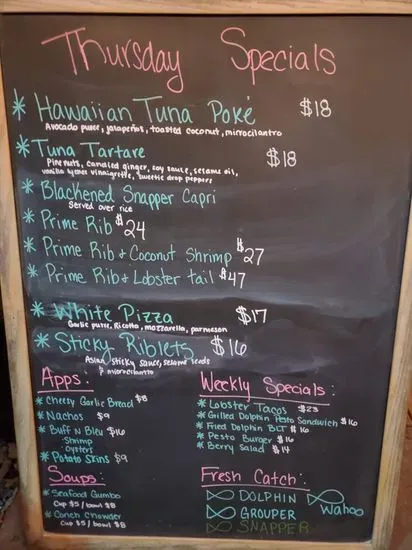 Thursday Specials
* Hawaiian Tuna Poké $18
Avocado puree, jalapeños, toasted coconut, microcilantro
* Tuna Tartare $18
Pine nuts, candied ginger, soy sauce, sesame oil,
vanilla lychee vinaigrette, sweetie drop peppers
* Blackened Snapper Capri
Served over rice
* Prime Rib $24
* Prime Rib & Coconut Shrimp $27
* Prime Rib & Lobster tail $47
* White Pizza $17
Garlic puree, Ricotta, mozzarella, parmesan
* Sticky Riblets $16
Asian sticky sauce, sesame seeds
& microcilantro
Apps:
* Cheesy Garlic Bread $8
* Nachos $9
* Buff N Bleu $16
Shrimp
Oysters
* Potato Skins $9
Soups:
* Seafood Gumbo
Cup $5 / bowl $8
* Conch Chowder
Cup $5 / bowl $8
Weekly Specials:
* Lobster Tacos $23
* Grilled Dolphin Pesto Sandwich $16
* Fried Dolphin BLT $16
* Pesto Burger $16
* Berry Salad $14
Fresh Catch:
DOLPHIN
Wahoo
GROUPER
SNAPPER